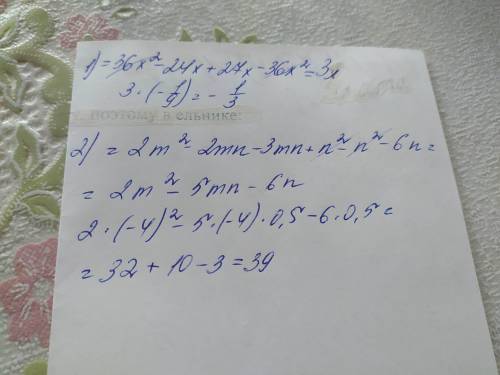 1) = 36x² - 24x + 27x - 36x² = 3x
3 · (-1/9) = - 1/3
поэтому в ельнике:
2) = 2m² - 2mn - 3mn + n² - n² - 6n =
= 2m² - 5mn - 6n
2 · (-4)² - 5 · (-4) · 0,5 - 6 · 0,5 =
= 32 + 10 - 3 = 39